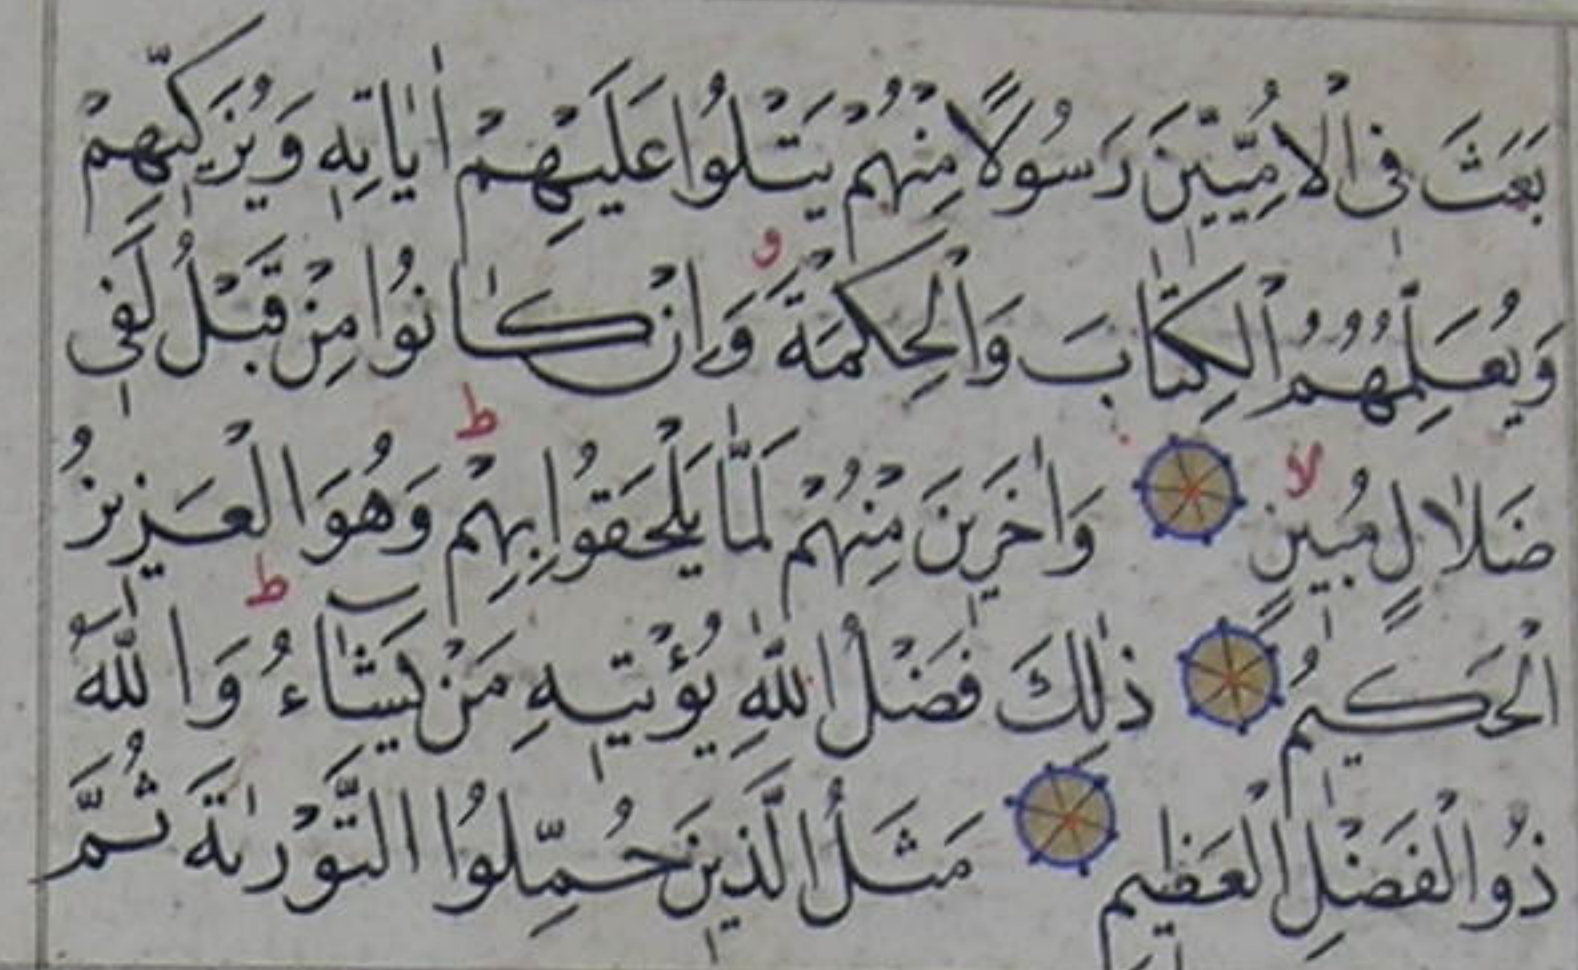 بَعَثَ فِى الْاُمِّيّٖنَ رَسُولًا مِنْهُمْ يَتْلُوا عَلَيْهِمْ اٰيَاتِهٖ وَيُزَكّٖيهِمْ
وَيُعَلِّمُهُمُ الْكِتَابَ وَالْحِكْمَةَ و وَاِنْ كَانُوا مِنْ قَبْلُ لَفٖى
ضَلَالٍ مُبٖينٍ لا وَاٰخَرٖينَ مِنْهُمْ لَمَّا يَلْحَقُوا بِهِمْ ط وَهُوَ الْعَزٖيزُ
الْحَكٖيمُ ذٰلِكَ فَضْلُ اللّٰهِ يُؤْتٖيهِ مَنْ يَشَاءُ ط وَاللّٰهُ
ذُو الْفَضْلِ الْعَظٖيمِ مَثَلُ الَّذٖينَ حُمِّلُوا التَّوْرٰيةَ ثُمَّ